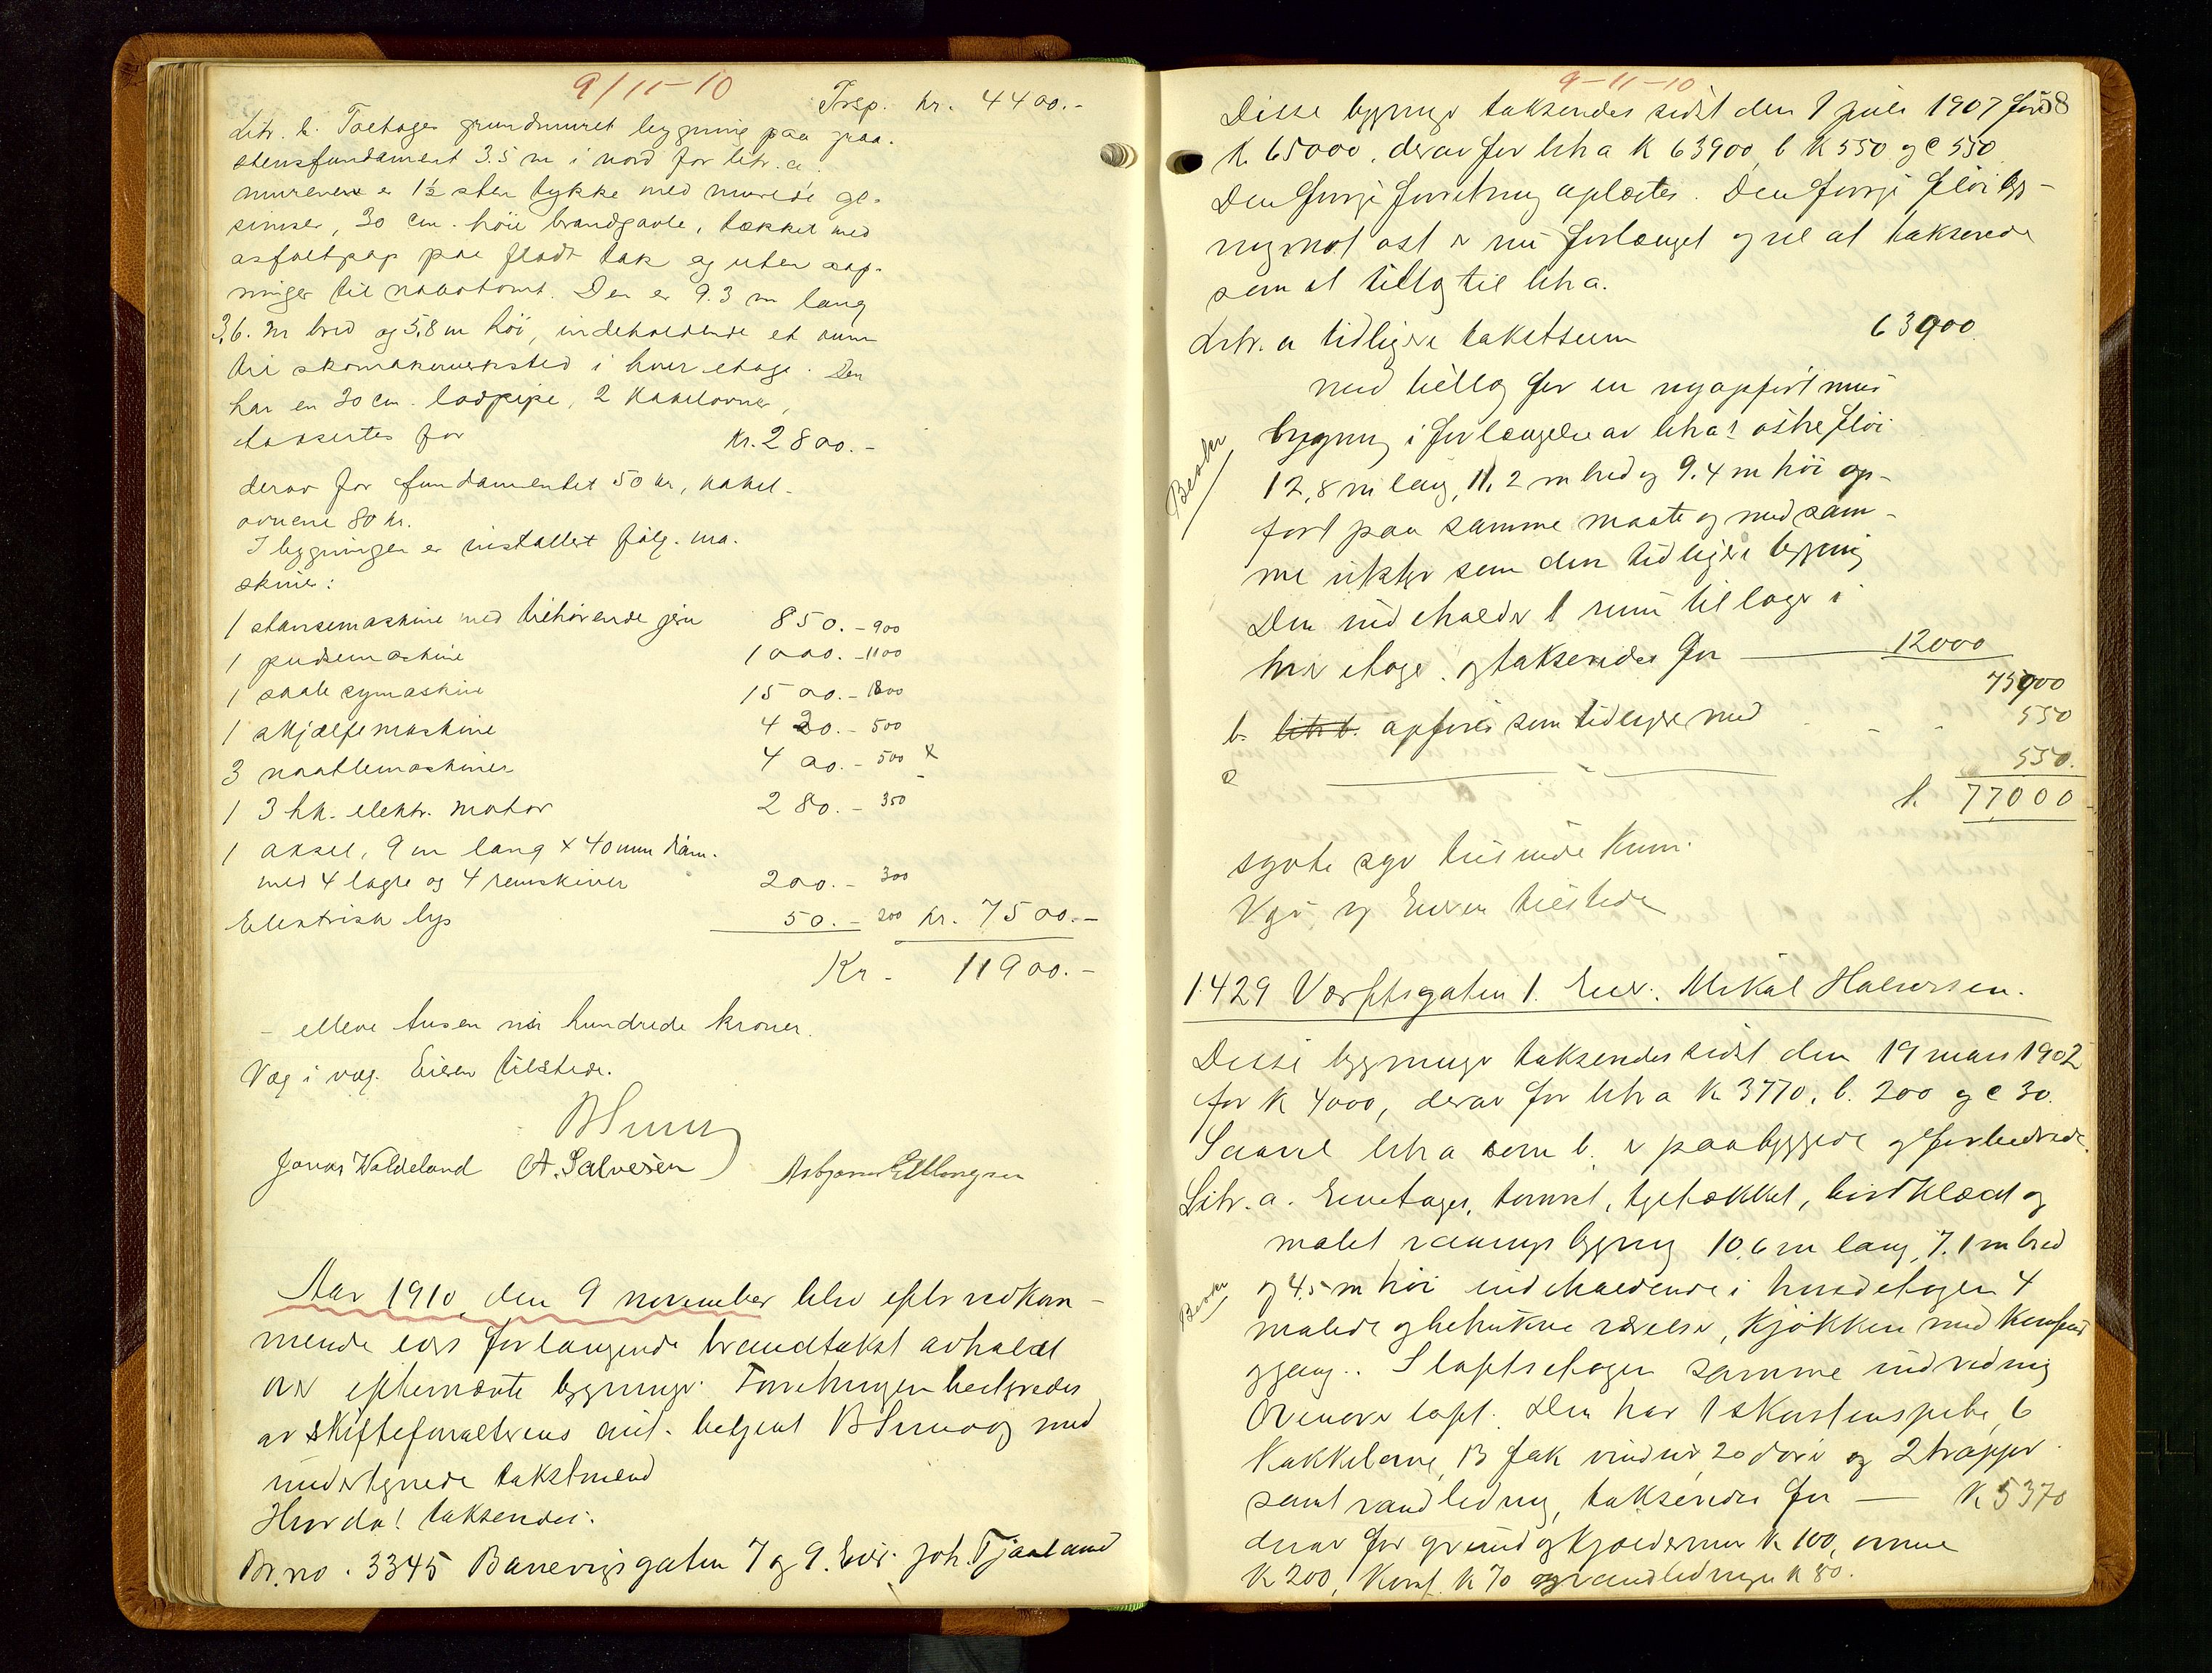 9/11-10
Trsp. kr. 4400.-
Litr. b. Toetages grundmuret bygning paa graa-
stensfundament 3.5 m i nord for litr. a.
murene er 1½ sten tykke med murede ge-
simser, 30 cm. høie brandgavle, tækket med
asfaltpap paa fladt tak og uten aap-
ninger til nabotomt. Den er 9.3 m lang
3,6. m bred og 5,8 m høi, indeholdende et rum
til skomakerverksted i hver etage. Den
har en 20 cm. lodpipe, 2 kakelovner,
taksertes for kr. 2800.-
derav for fundamentet 50 kr, kakel-
ovnene 80 kr.
I bygningen er installert følg. ma-
skiner:
1 stansemaskine med tilhørende jern 850.- 900
1 pudsemaskine 1000.- 1100
1 saale symaskine 1500.- 1800
1 skjælfemaskine 420.- 500
3 naatlemaskiner 400.- 500 x
1 3 hk. elektr. motor 280.- 350
1 aksel, 9 m lang x 40 mm diam.
med 4 lagre og 4 remskiver 200.- 300
Elektrisk lys 50.- 200 kr. 7500.-
Kr. 11900.-
- elleve tusen ni hundrede kroner.
Væg i væg. Eieren tilstede.
Jonas Waldeland A. Salvesen Asbjørn Ellingsen
Aar 1910, den 9 november blev efter vedkom-
mende eiers forlangende brandtakst avholdt
over efternævnte bygninger. Forretningen bestyredes
av skifteforvalterens aut. betjent og med
undertegnede takstmænd
Hvorda! taksertes:
Br. no. 3345 Banevigsgaten 7 og 9. Eier. Joh. Tjaaland
9-11-10
58
Disse bygninger taksertes sidst den 1 juli 1907 for
k 65000, derav for litra a K 63900, b K 550 og c 550
Den forrige forretning oplæstes. Den forrige fløibyg-
ning mot øst er nu forlænget og vil at taksere
som et tillæg til litr a.
Litr. a tidligere takstsum 63900
med tillæg for en nyopført mur
bygning i forlængelse av litr a's østre fløi
12,8 m lang, 11.2 m bred og 9.4 m høi op-
ført paa samme maate og med sam-
me utstyr som den tidligere bygning
Besktr
Den indeholder 1 rum til lager i
hver etage. og taksertes for 12000
75900
b. litr b. opføres som tidligere med 550
c 550.
k. 77000-
sytti syv tusinde kroner.
Væg i væg Eieren tilstede
1429 Værftsgaten 1. Eier. Mikal Halvorsen.
Disse bygninger taksertes sidst den 19 mars 1902
for K 4000, derav for litr a K 3770, b. 200 og c 30.
Saavel litr a som b. er paabyggede og forbedrede.
Litr. a. Enetages, tømret, tegltækket, bordklædt og
malet vaaningsbygning 10,6 m lang, 7.1 m bred
og 4.5 m høi indeholdende i hovedetagen 4
Besktr
malede og betrukne værelser, kjøkken med komfur
og gang. I loftsetagen samme indredning
Ovenover loft. Den har 1 skorstenspibe, 6
kakkelovne, 13 fak vinduer, 20 døre og 2 trapper
samt vandledning, taksertes for K 5370
derav for grund og kjældermur k 100, ovnene
K 200, Komf. K 70 og vandledningen K 80.